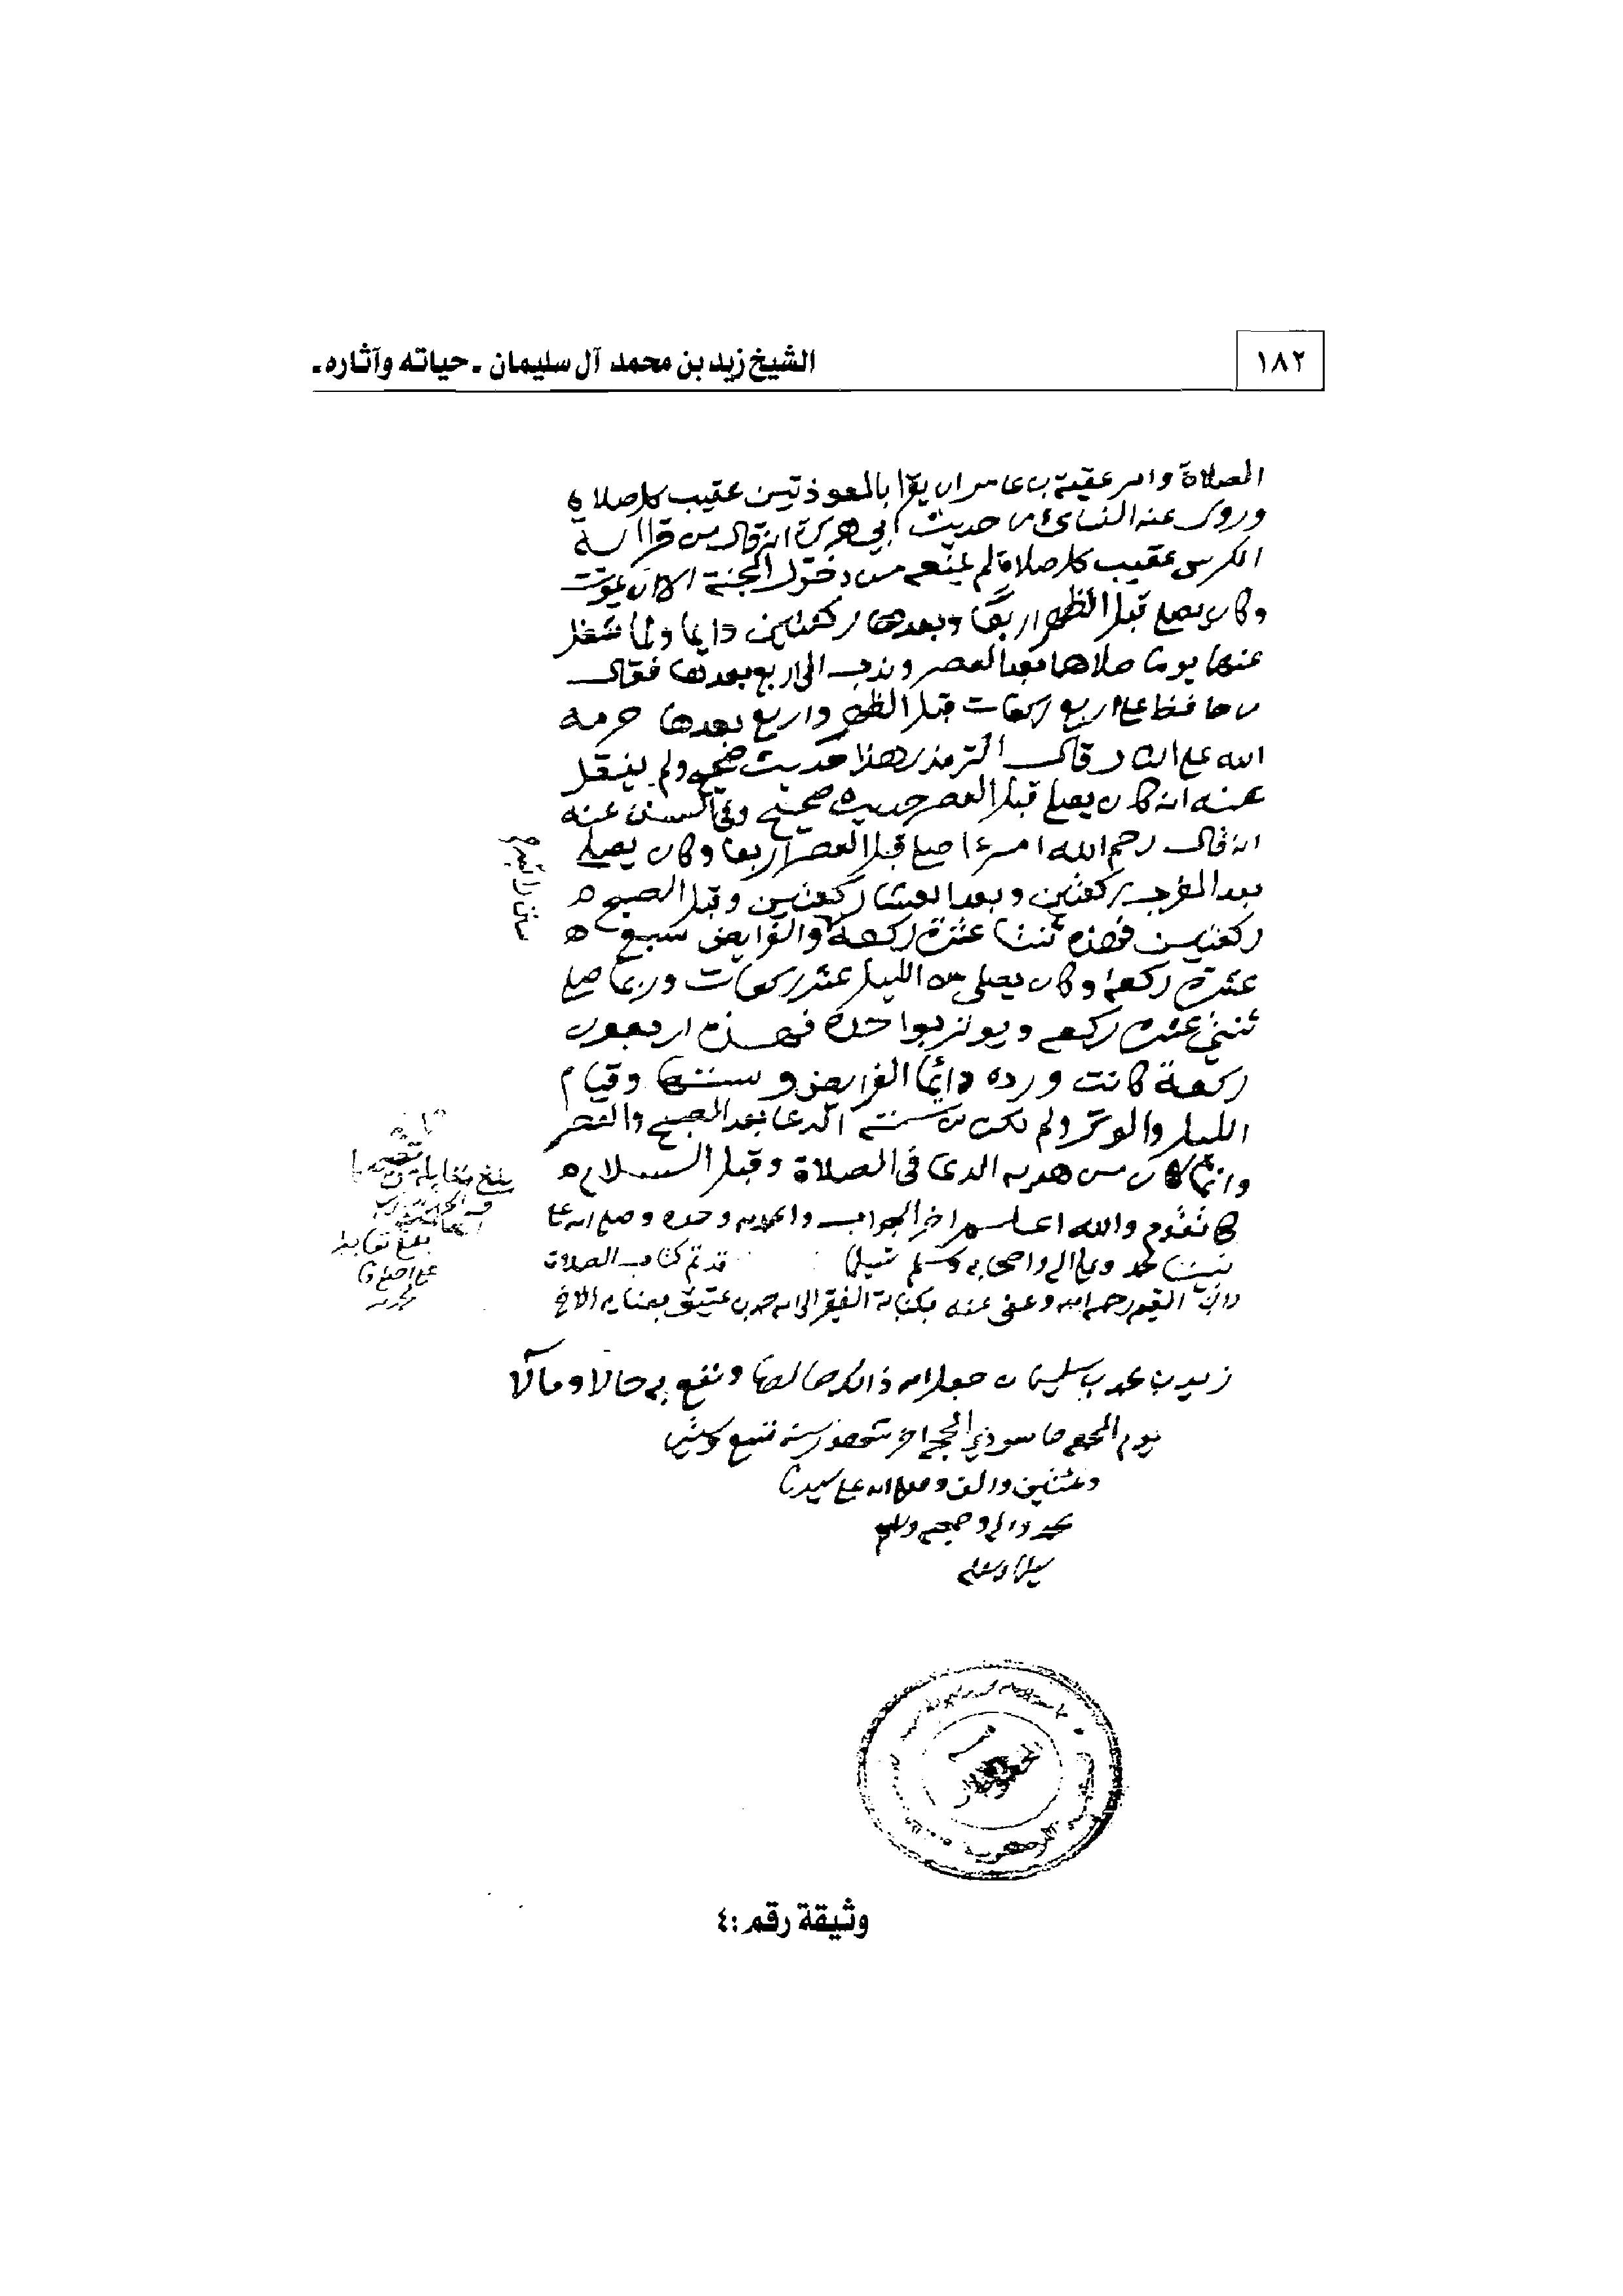 ١٨٢
الشيخ زيد بن محمد آل سليمان - حياته وآثاره -
الصلاة وامر عقبة بن عامر ان يقرا بالمعوذتين عقيب كل صلاة
وروى عنه النسائ من حديث ابي هريرة انه قال من قرا اية
الكرسي عقيب كل صلاة لم يمنعه من دخول الجنة الا ان يموت
وكان يصلي قبل الظهر اربعًا وبعدها ركعتين دايما ولما شغل
عنها يوما صلاها بعد العصر وندب الى اربع بعدها فقال
من حافظ على اربع ركعات قبل الظهر واربع بعدها حرمه
الله على النار قال الترمذي هذا حديث صحيح ولم ينقل
عنه انه كان يصلي قبل العصر حديث صحيح وفي السنن عنه
انه قال رحم الله امرءا صلى قبل العصر اربعا وكان يصلي
بعد المغرب ركعتين وبعد العشا ركعتين وقبل الصبح
ركعتين فهذه ثنتا عشرة ركعة والفرايض سبع
عشرة ركعة وكان يصلي من الليل عشر ركعات وربما صلى
ثنتي عشرة ركعة ويوتر بواحدة فهذه اربعون
ركعة كانت ورده دائما الفرايض وسننها وقيام
الليل والوتر ولم يكن من سنته الدعا بعد الصبح والعصر
وانما كان من هديه الدعا في الصلاة وقبل السلام
كما تقدم والله اعلم اخر الجواب والحمد لله وحده وصلى الله على
نبينا محمد وعلى اله واصحابه وسلم تسليما قد تم كتاب الصلاة
لابن القيم رحمه الله وعفى عنه بكتابة الفقير الى الله حمد بن عتيق بعناية الاخ
زيد بن محمد بن سليمان جعل الله ذالك خالصا ونفع به حالا ومآلا
يوم الجمعة خامس ذي الحجة اخر شهور سنة تسع وستين
ومئتين والف وصلى الله على سيدنا
محمد واله وصحبه وسلم
بلغ مقابلة
بلغ مقابلة
على اصله
وثيقة رقم: ٤